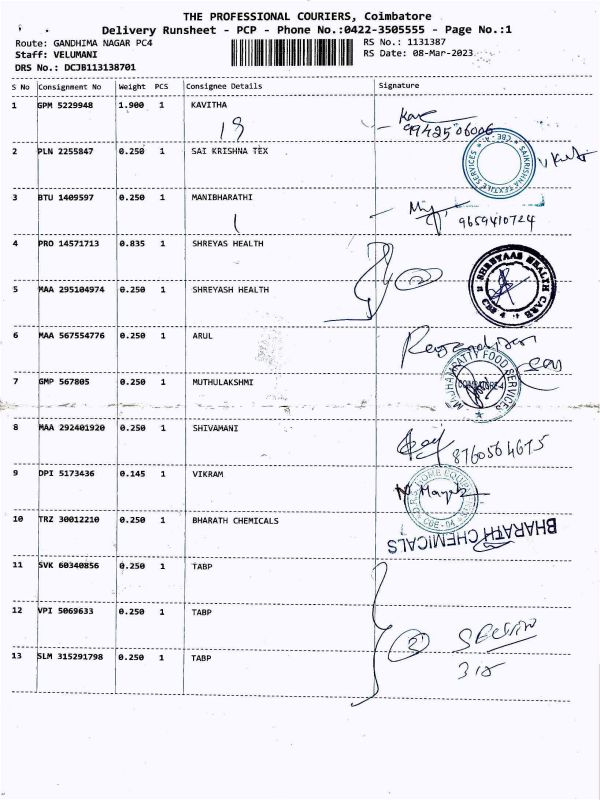 THE PROFESSIONAL COURIERS, Coimbatore
Delivery Runsheet - PCP - Phone No.:0422-3505555 - Page No.:1
Route: GANDHIMA NAGAR PC4
RS No.: 1131387
Staff: VELUMANI
RS Date: 08-Mar-2023
DRS No.: DCJB113138701
S No Consignment No Weight PCS Consignee Details Signature
1 GPM 5229948 1.900 1 KAVITHA
19
9942506006
2 PLN 2255847 0.250 1 SAI KRISHNA TEX
SAIKRISHNA TEXTILE SERVICES CBE-4.
3 BTU 1409597 0.250 1 MANIBHARATHI
9659410724
4 PRO 14571713 0.835 1 SHREYAS HEALTH
SHREYAAS HEALTH CARE CBE 4
5 MAA 295104974 0.250 1 SHREYASH HEALTH
6 MAA 567554776 0.250 1 ARUL
7 GMP 567805 0.250 1 MUTHULAKSHMI
FOOD SERVICES
COIMBATORE-4
8 MAA 292401920 0.250 1 SHIVAMANI
8760564675
9 DPI 5173436 0.145 1 VIKRAM
HOME EQUIPMENTS CBE-04
10 TRZ 30012210 0.250 1 BHARATH CHEMICALS
BHARATH CHEMICALS
11 SVK 60340856 0.250 1 TABP
12 VPI 5069633 0.250 1 TABP
3 SECTION
13 SLM 315291798 0.250 1 TABP